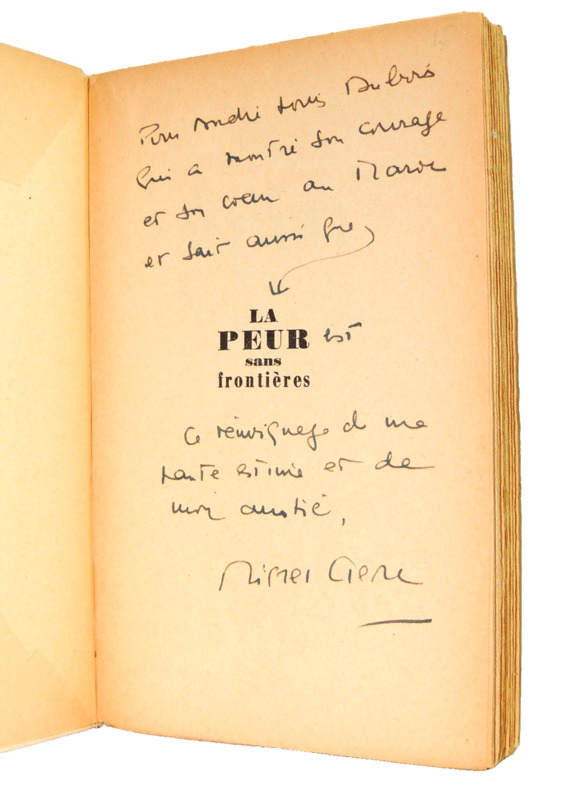 Pour André Louis Dubois
qui a montré son courage
et son coeur au Maroc
et sait aussi que
LA
PEUR est
sans
frontières
Ce témoignage de ma
haute estime et de
mon amitié,